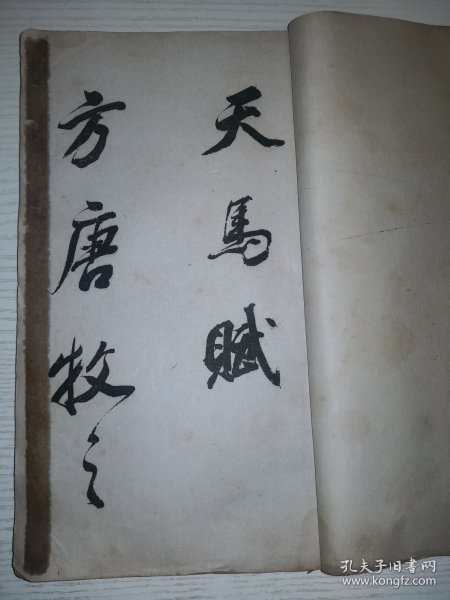 天馬賦
方唐牧之
孔夫子旧书网
www.kongfz.com